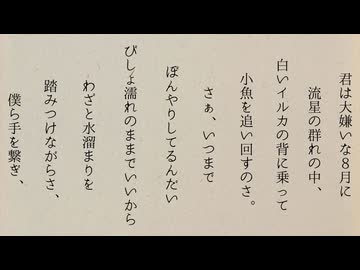 君は大嫌いな８月に
流星の群れの中、
白いイルカの背に乗って
小魚を追い回すのさ。
さぁ、いつまで
ぼんやりしてるんだい
びしょ濡れのままでいいから
わざと水溜まりを
踏みつけながらさ、
僕ら手を繋ぎ、